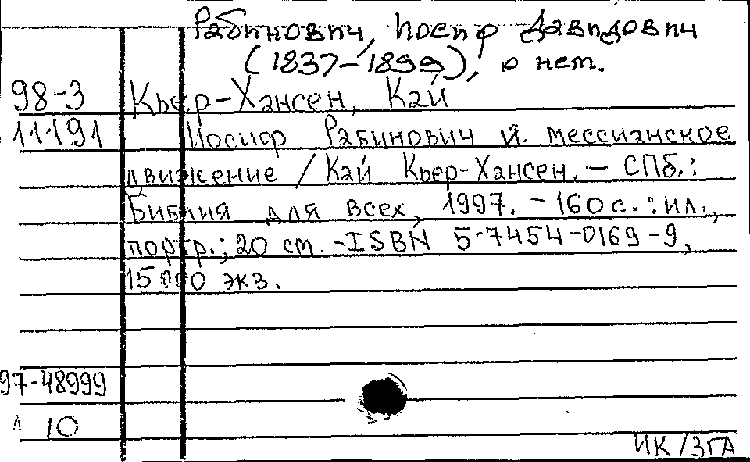 Рабинович, Иосиф Давидович
(1837-1899), о нем.
98-3 Кьер-Хансен, Кай
11191 Иосиф Рабинович и мессианское
движение / Кай Кьер-Хансен. - СПб.:
Библия для всех, 1997. - 160 с. : ил.,
портр.; 20 см. - ISBN 5-7454-0169-9,
15000 экз.
97-48999
10
ИК/ЗГА